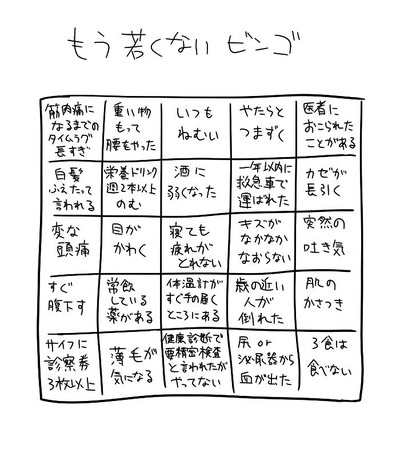 もう若くないビンゴ
筋肉痛に
なるまでの
タイムラグ
長すぎ
重い物
もって
腰をやった
いつも
ねむい
やたらと
つまずく
医者に
おこられた
ことがある
白髪
ふえたって
言われる
栄養ドリンク
週2本以上
のむ
酒に
弱くなった
一年以内に
救急車で
運ばれた
カゼが
長引く
変な
頭痛
目が
かわく
寝ても
疲れが
とれない
キズが
なかなか
なおらない
突然の
吐き気
すぐ
腹下す
常飲
している
薬がある
体温計が
すぐ手の届く
ところにある
歳の近い
人が
倒れた
肌の
かさつき
サイフに
診察券
3枚以上
薄毛が
気になる
健康診断で
要精密検査
と言われたが
やってない
尻or
泌尿器から
血が出た
3食は
食べない